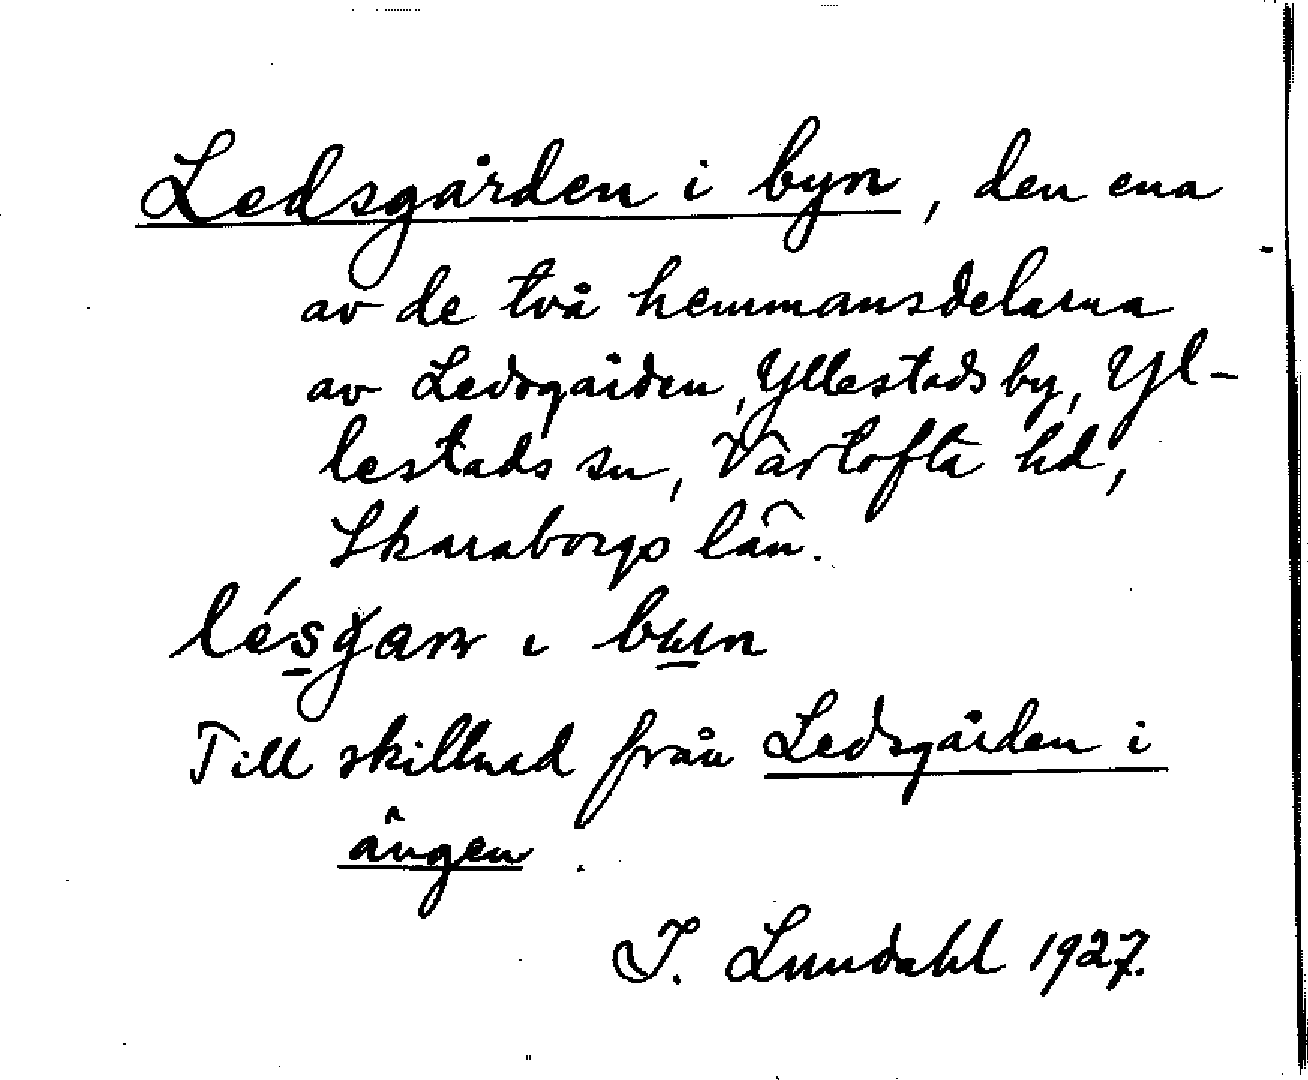 Ledsgården i byn, den ena
av de två hemmansdelarna
av Ledsgården, Yllestads by, Yl-
lestads sn, Vartofta hd,
Skaraborgs län.
lésgarn i byn
Till skillnad från Ledsgården i
ängen.
I. Lundahl 1927.